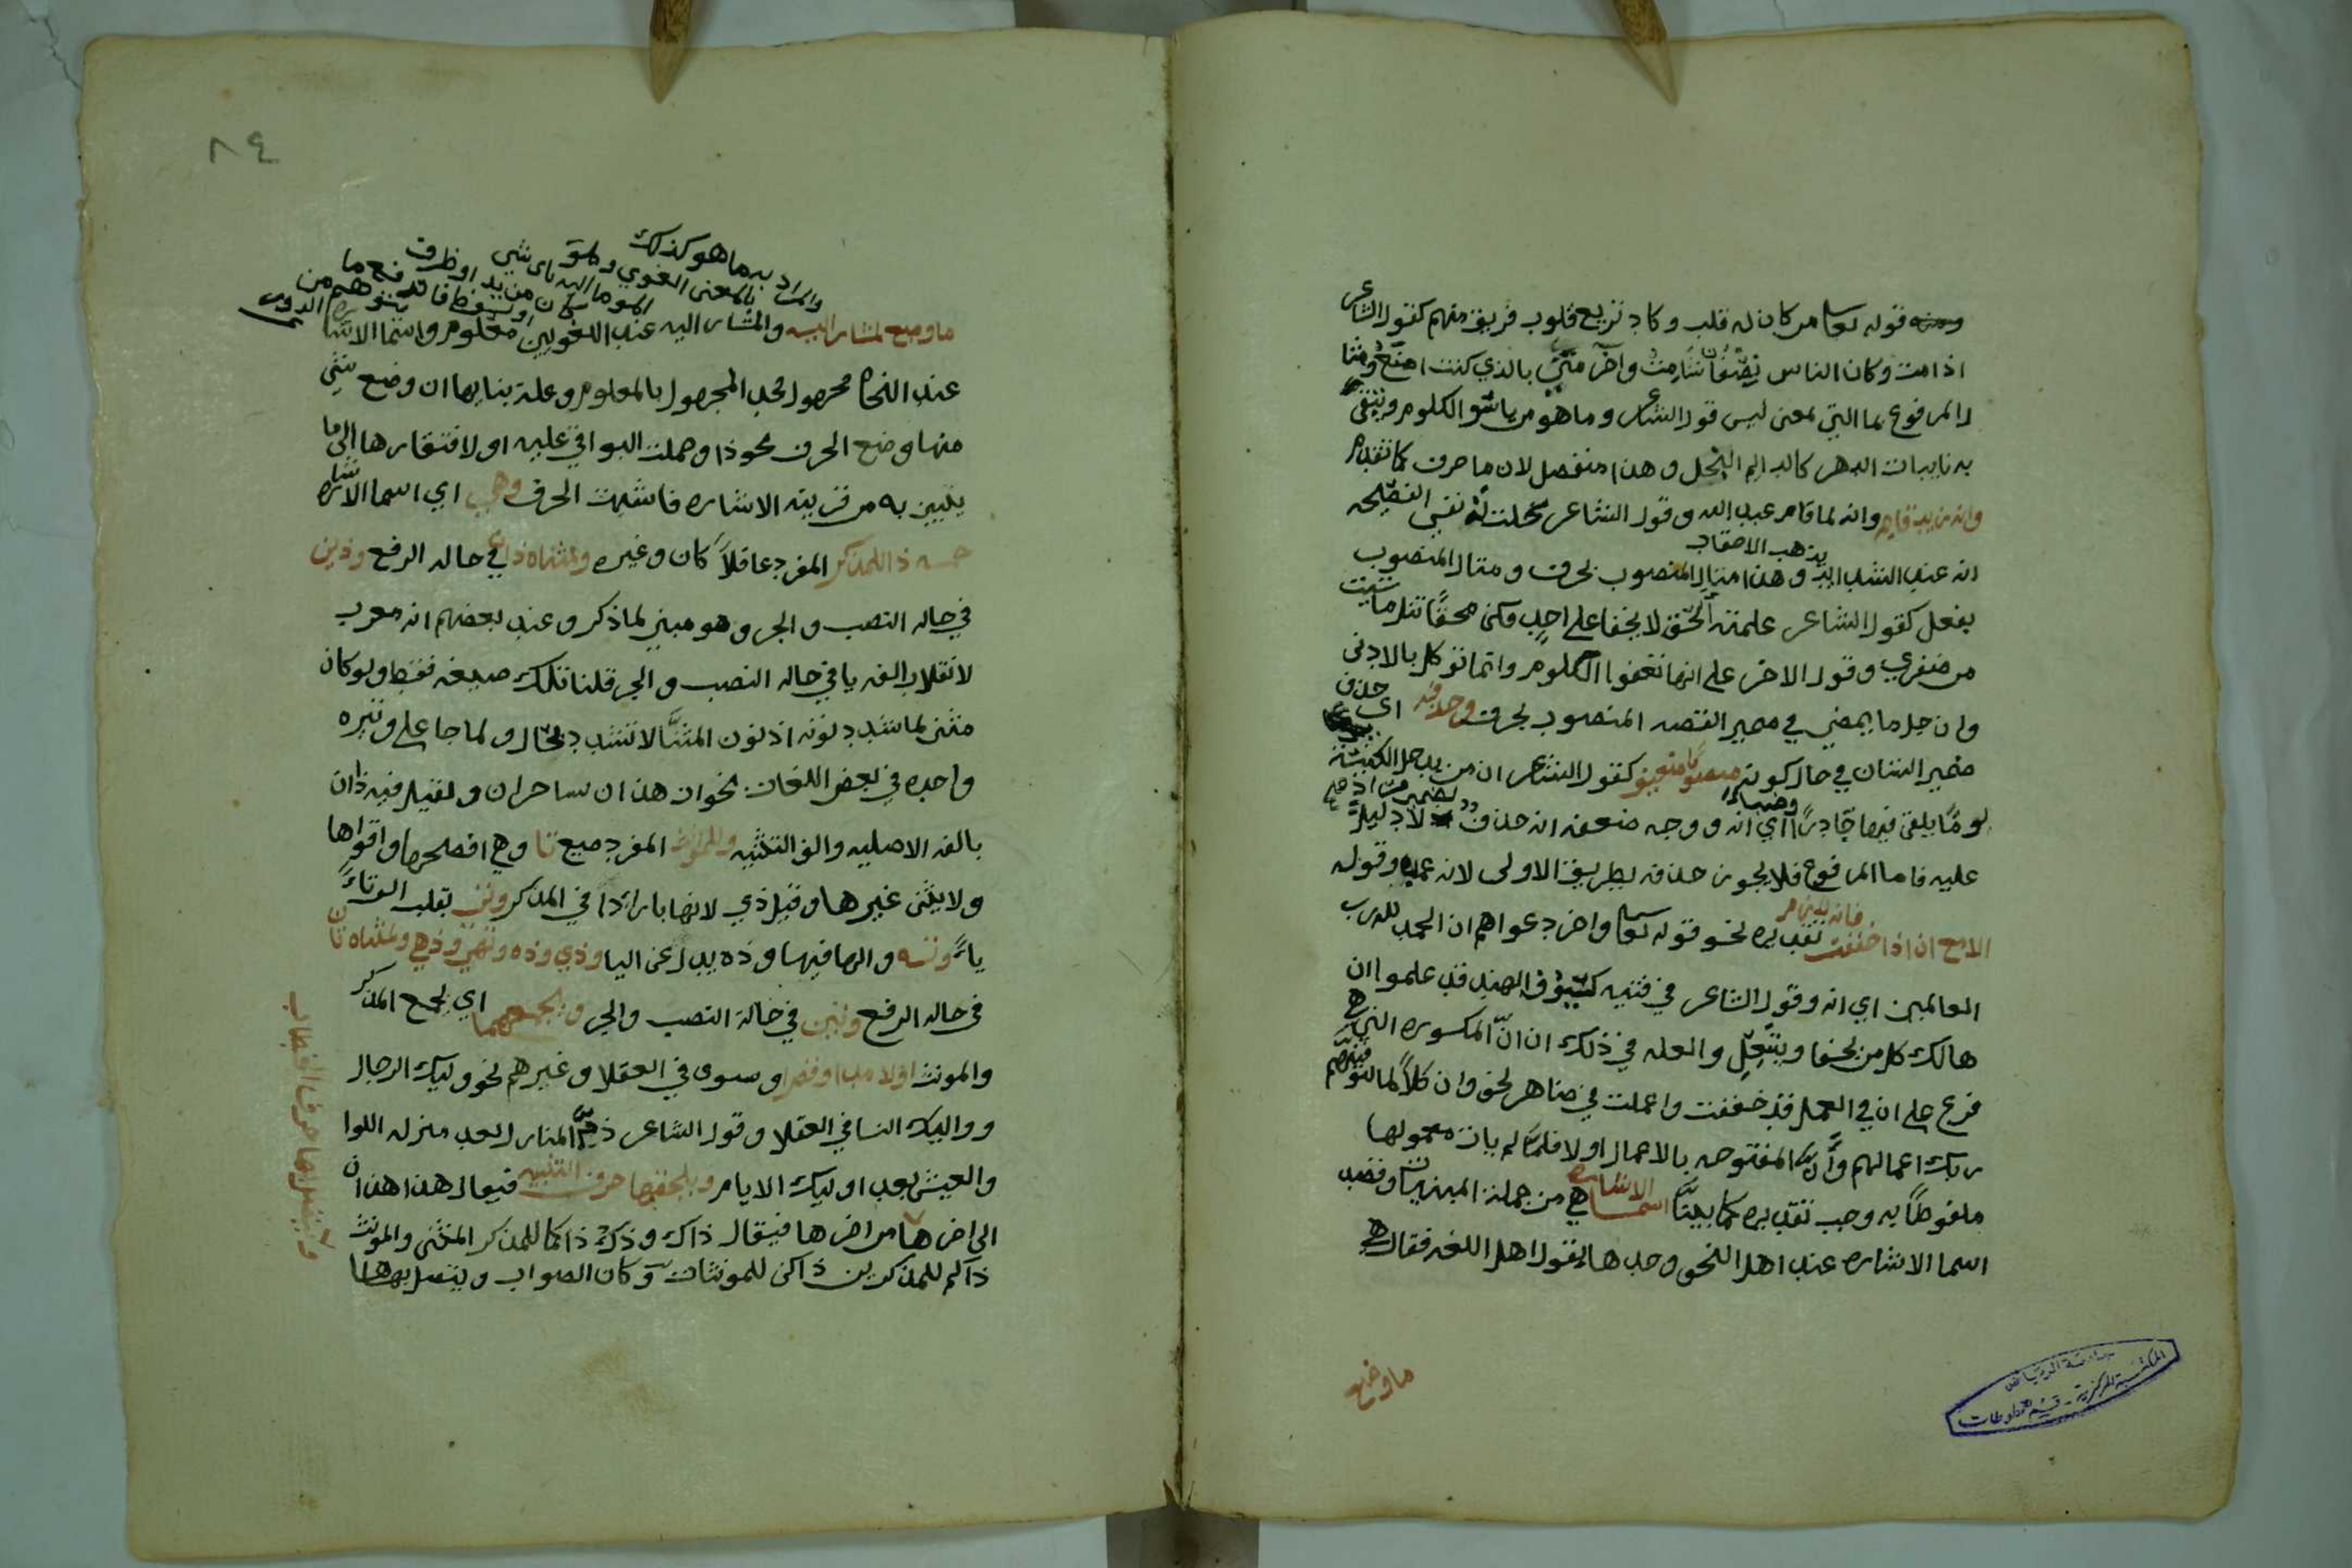 ومنه قوله تعالى من كان له قلب وكاد تزيغ قلوب فريق منهم كقول الشاعر
اذا مت وكان الناس نصفان شامت واخر مثن بالذي كنت اصنع ومثا
ل المرفوع بما التي بمعنى ليس قول الشاعر وما هو من ياسو الكلوم ويتقى
به نايبات الدهر كالدايم البخل وهذا منفصل لان ما حرف كما تقدم
وانه زيد قايم وانه لما قام عبد الله وقول الشاعر تخلت له نفسي النصيحه
انه عند الشدايد تذهب الاحقاد وهذا مثال المنصوب بحرف ومثال المنصوب
بفعل كقول الشاعر علمته الحق لا يخفا على احد فكن محقا تنل ما شيت
من ظفري وقول الاخر على انها تعفوا الكلوم وانما توكل بالادنى
وان جل ما يمضي في ضمير القصه المنصوب بحرف وحذفه اي حذف
ضمير الشان في حال كونه منصوبا ضعيف كقول الشاعر ان من يدخل الكنيسة
يوما يلق فيها جآدرا وضباء اي انه ووجه ضعفه انه حذف ضمير مراد لا دليل
عليه فاما المرفوع فلا يجوز حذفه بطريق الاولى لانه عمده وقوله
الا مع ان اذا خففت فانه لازم تقديره نحو قوله تعالى واخر دعواهم ان الحمد لله رب
العالمين اي انه وقول الشاعر في فتيه كسيوف الهند قد علموا ان
هالك كل من يحفا وينتعل والعله في ذلك ان ان المكسوره التي هي
فرع على ان في العمل قد خففت واعملت في ظاهر نحو وان كلا لما ليوفينهم
ربك اعمالهم وان المفتوحه بالاعمال اولا فلما لم يات معمولها
ملفوظا به وجب تقديره كما بينا اسما الاشاره هي من جملة المبنيات وقصد
اسما الاشاره عند اهل النحو وحدها بقول اهل اللغه فقال هي
ما وضع
جامعة الرياض
المكتبة المركزية - قسم المخطوطات
٨٤
والمراد به ما هو كذلك
بالمعنى اللغوي وهو
الموما اليه باي شي
كان من يد او ظرف
او لفظ فاندفع ما
يتوهم من الدور
ما وضع لمشار اليه والمشار اليه عند اللغويين معلوم واسما الاشا
عند النحاه مجهول فحد المجهول بالمعلوم وعلة بنايها ان وضع شي
منها وضع الحرف نحو ذا وحملت البواقي عليه او لافتقارها الى ما
يتبين به من قرينه الاشاره فاشبهت الحرف وهي اي اسما الاشاره
خمسه ذا للمذكر المفرد عاقلا كان وغيره ولمثناه ذان في حاله الرفع وذين
في حاله النصب والجر وهو مبني لما ذكر وعند بعضهم انه معرب
لانقلاب الفه يا في حاله النصب والجر قلنا تلك صيغه فقط ولو كان
مثنى لما شدد نونه اذ نون المثنا لا تشدد بحال ولما جا على وتيره
واحده في بعض اللغات نحو ان هذان لساحران ولقيل فيه ذاان
بالفه الاصليه والف التثنيه وللمونث المفرد صيغ تا وهي افصلحها واقواها
ولا يثنى غيرها وقيل ذي لانها بازا ذا في المذكر وتي بقلب الف تا
ياء وته والها فيها وذه بدل عن اليا وذي وذه وتهي وذهي ولمثناه تان
في حاله الرفع وتين في حالة النصب والجر ولجمعهما اي لجمع المذكر
والمونث اولا مدا وقصرا وسوى في العقلا وغيرهم نحو اوليك الرجال
واوليك النسا في العقلا وقول الشاعر ذم المنازل بعد منزله اللوا
والعيش بعد اوليك الايام ويلحقها حرف التنبيه فيقال هذا هذان
الى اخرها من اخرها فيقال ذاك وذكر ذاكما للمذكر المثنى والمونث
ذاكم للمذكرين ذاكن للمونثات وكان الصواب ويتصل بها
ويتصل بها حرف الخطاب